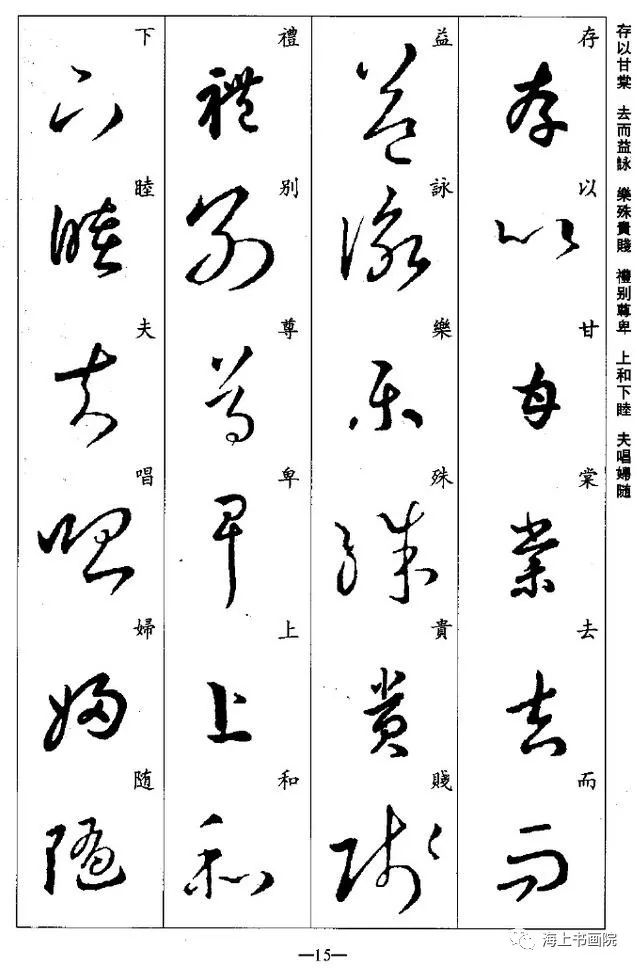 存以甘棠 去而益詠 樂殊貴賤 禮別尊卑 上和下睦 夫唱婦随
存以甘棠去而
益詠樂殊貴賤
禮別尊卑上和
下睦夫唱婦随
—15—
海上书画院